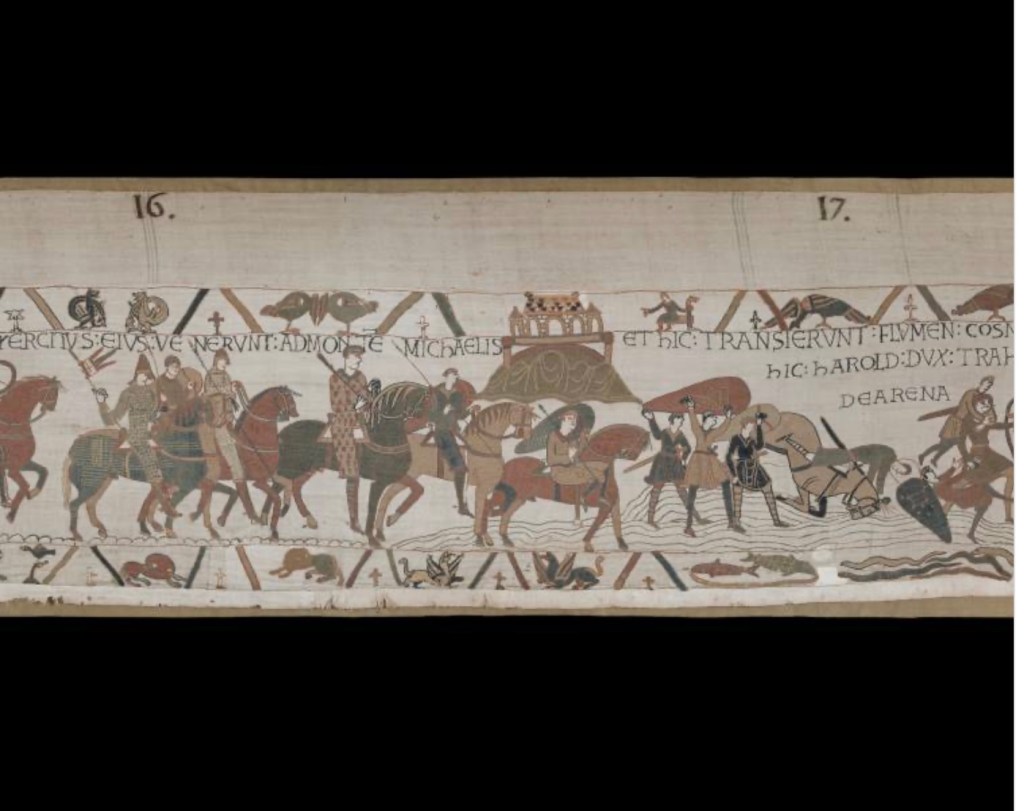 16.
17.
ERCITVS:EIVS:VE NERVNT:ADMONTĒ MICHAELIS
ET hIC:TRANSIERVNT:FLVMEN:COSN
hIC:hAROLD:DVX:TRAh
DEARENA